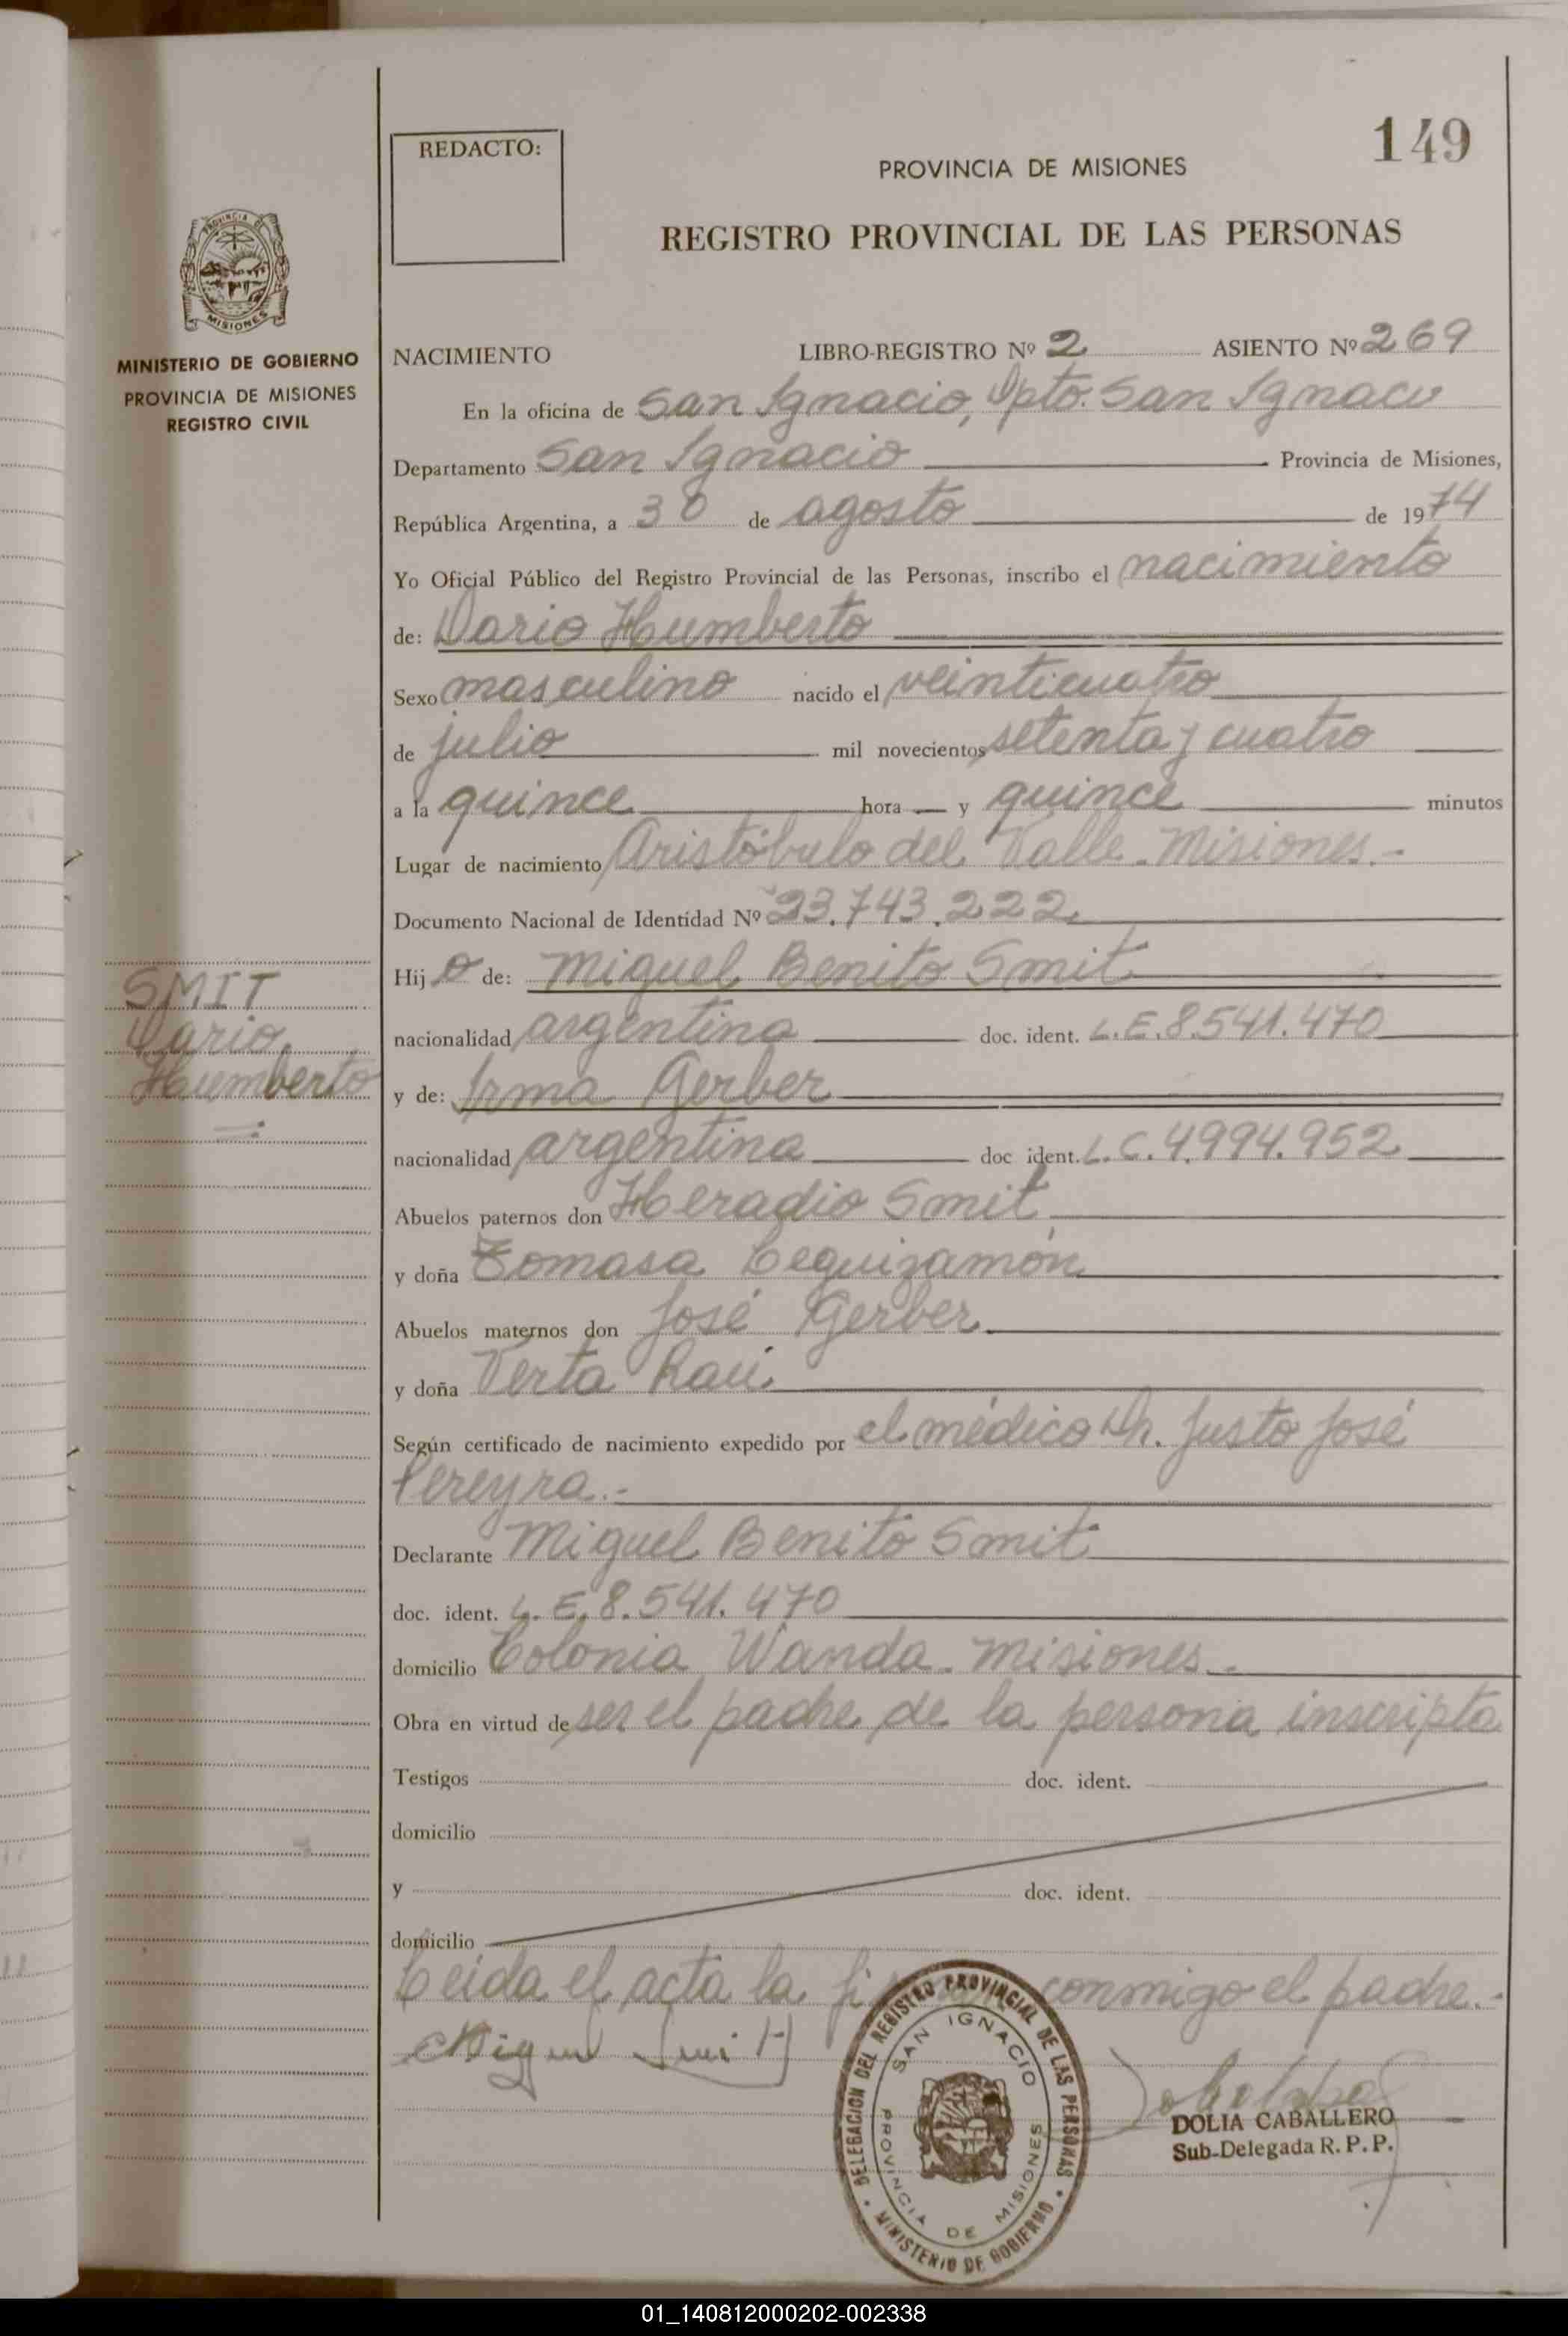 149
REDACTO:
PROVINCIA DE MISIONES
REGISTRO PROVINCIAL DE LAS PERSONAS
PROVINCIA DE
MISIONES
MINISTERIO DE GOBIERNO
PROVINCIA DE MISIONES
REGISTRO CIVIL
NACIMIENTO LIBRO-REGISTRO Nº 2 ASIENTO Nº 269
En la oficina de San Ignacio, Dpto. San Ignacio
Departamento San Ignacio Provincia de Misiones,
República Argentina, a 30 de agosto de 1974
Yo Oficial Público del Registro Provincial de las Personas, inscribo el nacimiento
de: Dario Humberto
Sexo masculino nacido el veinticuatro
de julio mil novecientos setenta y cuatro
a la quince hora — y quince minutos
Lugar de nacimiento Aristóbulo del Valle - Misiones.-
Documento Nacional de Identidad Nº 23.743.222
Hijo de: Miguel Benito Smit
nacionalidad argentina doc. ident. L.E.8.541.470
y de: Irma Gerber
nacionalidad argentina doc ident. L.C.4.994.952
Abuelos paternos don Heradio Smit
y doña Tomasa Leguizamón
Abuelos maternos don José Gerber
y doña Verta Rau
Según certificado de nacimiento expedido por el médico Dr. Justo José
Pereyra.-
Declarante Miguel Benito Smit
doc. ident. L.E.8.541.470
domicilio Colonia Wanda - Misiones.-
Obra en virtud de ser el padre de la persona inscripta
Testigos doc. ident.
domicilio
y doc. ident.
domicilio
Leida el acta la conmigo el padre.-
Miguel Smit
SMIT
Dario
Humberto
DELEGACION DEL REGISTRO PROVINCIAL DE LAS PERSONAS
SAN IGNACIO
PROVINCIA DE MISIONES
MINISTERIO DE GOBIERNO
DOLIA CABALLERO
Sub-Delegada R. P. P.
01_140812000202-002338